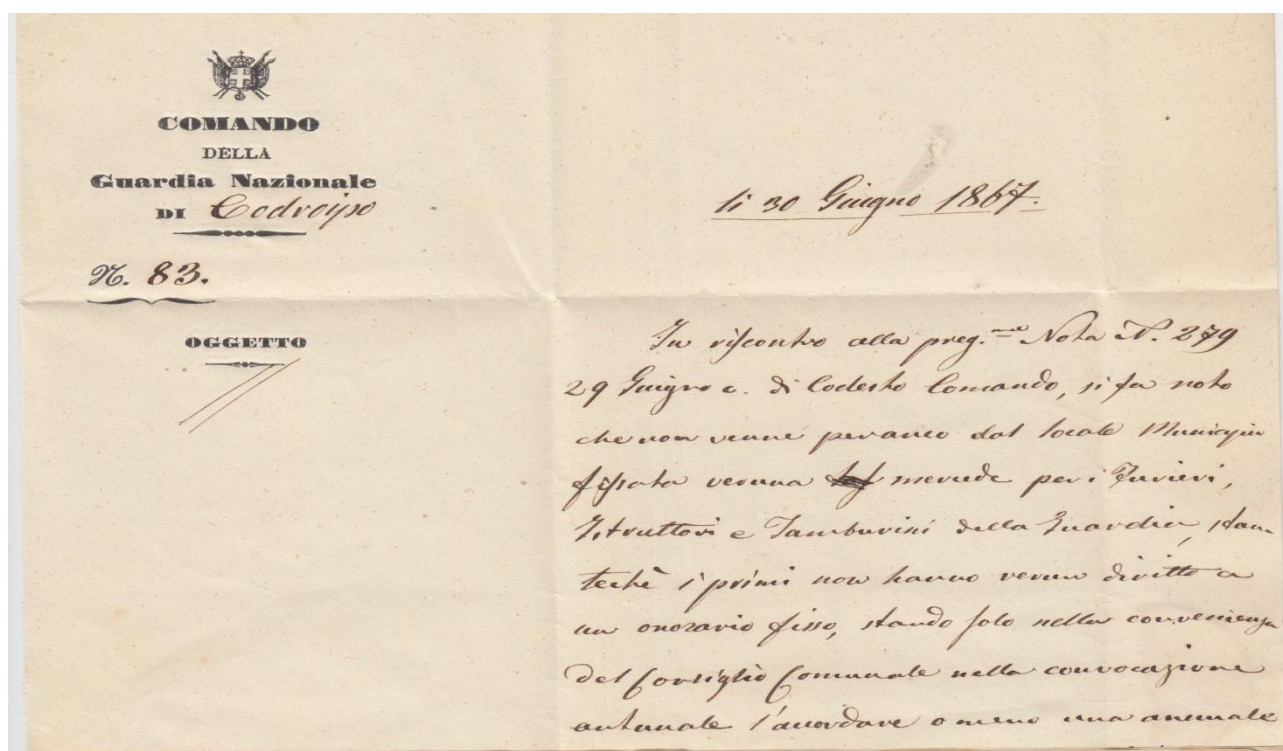 COMANDO
DELLA
Guardia Nazionale
DI Codroipo
N. 83.
OGGETTO
li 30 Giugno 1867.
In riscontro alla preg.ma Nota N. 279
29 Giugno c. di Codesto Comando, si fa noto
che non venne peranco dal locale Municipio
fissata veruna mercede per i Furieri,
Istruttori e Tamburini della Guardia, stan-
techè i primi non hanno verun diritto a
un onorario fisso, stando solo nella convenienza
del Consiglio Comunale nella convocazione
autunale l'accordare o meno una annuale